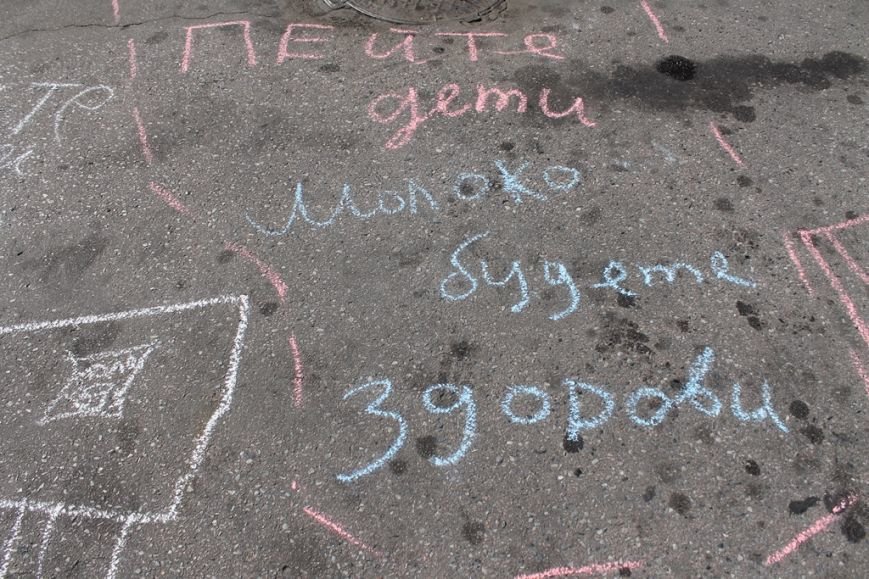 ПЕйте
дети
Молоко
будете
здорови